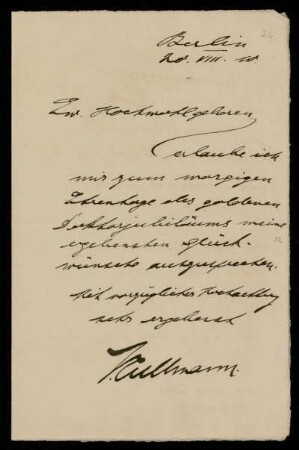 24
Berlin
20. VIII. 10.
Ew. Hochwohlgeboren
erlaube ich
mir zum morgigen
Ehrentage des goldenen
Doktorjubiläums meine
ergebensten Glück-
wünsche auszusprechen.
Mit vorzüglicher Hochachtung
sehr ergebenst